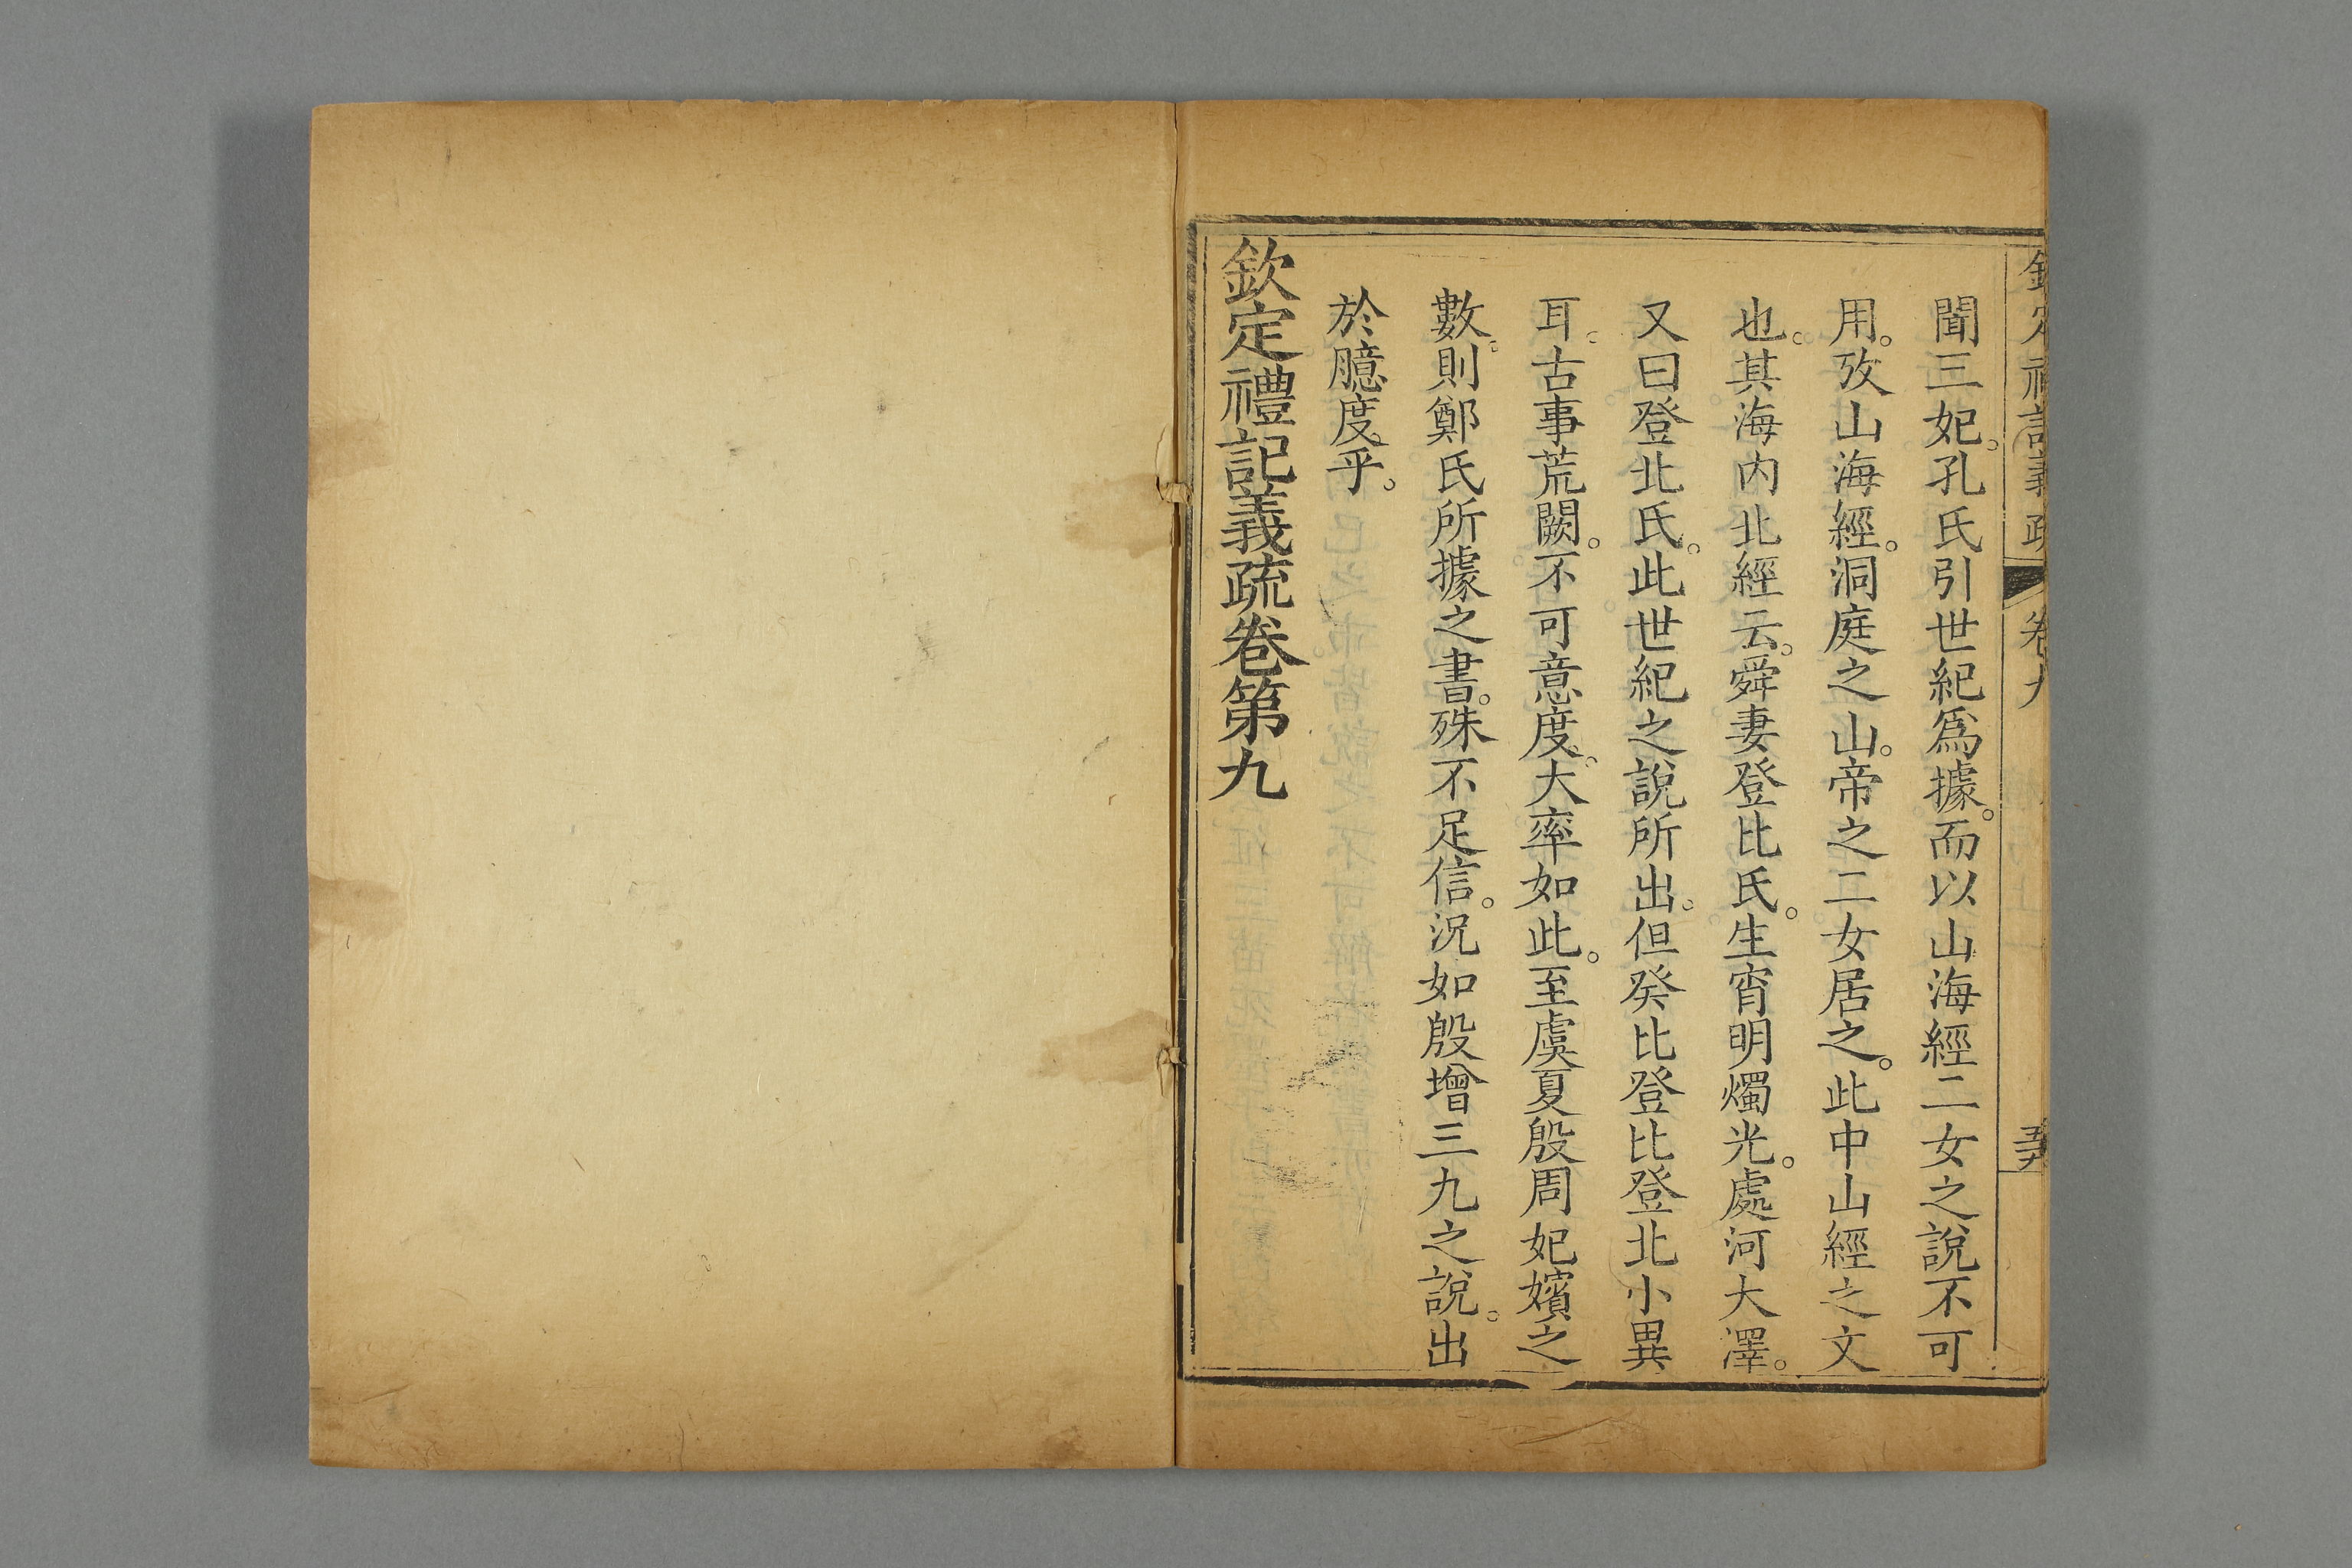 欽定禮記義疏 卷九
聞三妃。孔氏引世紀爲據。而以山海經二女之說不可
用。攷山海經。洞庭之山。帝之二女居之。此中山經之文
也。其海内北經云。舜妻登比氏。生宵明燭光。處河大澤。
又曰登北氏。此世紀之說所出。但癸比登比登北小異
耳。古事荒闕。不可意度。大率如此。至虞夏殷周妃嬪之
數。則鄭氏所據之書。殊不足信。況如殷增三九之說。出
於臆度乎。
欽定禮記義疏卷第九